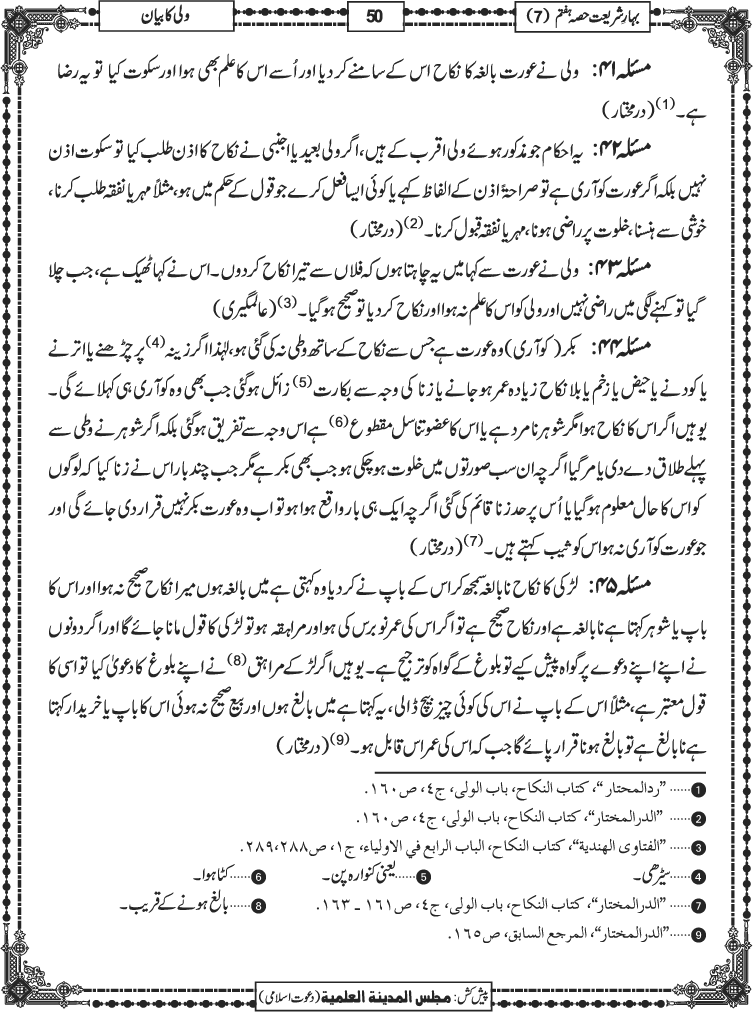 بہارِ شریعت حصہ ہفتم (7)
50
ولی کا بیان
مسئلہ ۴۱: ولی نے عورت بالغہ کا نکاح اس کے سامنے کر دیا اور اُسے اس کا علم بھی ہوا اور سکوت کیا تو یہ رضا
ہے۔(1) (درمختار)
مسئلہ ۴۲: یہ احکام جو مذکور ہوئے ولی اقرب کے ہیں، اگر ولی بعید یا اجنبی نے نکاح کا اذن طلب کیا تو سکوت اذن
نہیں بلکہ اگر عورت کوآری ہے تو صراحۃً اذن کے الفاظ کہے یا کوئی ایسا فعل کرے جو قول کے حکم میں ہو، مثلاً مہر یا نفقہ طلب کرنا،
خوشی سے ہنسنا، خلوت پر راضی ہونا، مہر یا نفقہ قبول کرنا۔(2) (درمختار)
مسئلہ ۴۳: ولی نے عورت سے کہا میں یہ چاہتا ہوں کہ فلاں سے تیرا نکاح کردوں۔ اس نے کہا ٹھیک ہے، جب چلا
گیا تو کہنے لگی میں راضی نہیں اور ولی کو اس کا علم نہ ہوا اور نکاح کر دیا تو صحیح ہوگیا۔(3) (عالمگیری)
مسئلہ ۴۴: بکر (کوآری) وہ عورت ہے جس سے نکاح کے ساتھ وطی نہ کی گئی ہو، لہٰذا اگر زینہ(4) پر چڑھنے یا اترنے
یا کودنے یا حیض یا زخم یا بلا نکاح زیادہ عمر ہو جانے یا زنا کی وجہ سے بکارت(5) زائل ہوگئی جب بھی وہ کوآری ہی کہلائے گی۔
یوہیں اگر اس کا نکاح ہوا مگر شوہر نامرد ہے یا اس کا عضو تناسل مقطوع(6) ہے اس وجہ سے تفریق ہوگئی بلکہ اگر شوہر نے وطی سے
پہلے طلاق دے دی یا مر گیا اگرچہ ان سب صورتوں میں خلوت ہو چکی ہو جب بھی بکر ہے مگر جب چند بار اس نے زنا کیا کہ لوگوں
کو اس کا حال معلوم ہو گیا یا اُس پر حد زنا قائم کی گئی اگرچہ ایک ہی بار واقع ہوا ہو تو اب وہ عورت بکر نہیں قرار دی جائے گی اور
جو عورت کوآری نہ ہو اس کو ثیب کہتے ہیں۔(7) (درمختار)
مسئلہ ۴۵: لڑکی کا نکاح نابالغہ سمجھ کر اس کے باپ نے کر دیا وہ کہتی ہے میں بالغہ ہوں میرا نکاح صحیح نہ ہوا اور اس کا
باپ یا شوہر کہتا ہے نابالغہ ہے اور نکاح صحیح ہے تو اگر اس کی عمر نو برس کی ہو اور مراہقہ ہو تو لڑکی کا قول مانا جائے گا اور اگر دونوں
نے اپنے اپنے دعوے پر گواہ پیش کیے تو بلوغ کے گواہ کو ترجیح ہے۔ یوہیں اگر لڑکے مراہق(8) نے اپنے بلوغ کا دعویٰ کیا تو اسی کا
قول معتبر ہے، مثلاً اس کے باپ نے اس کی کوئی چیز بیچ ڈالی، یہ کہتا ہے میں بالغ ہوں اور بیع صحیح نہ ہوئی اس کا باپ یا خریدار کہتا
ہے نابالغ ہے تو بالغ ہونا قرار پائے گا جب کہ اس کی عمر اس قابل ہو۔(9) (درمختار)
1 ...... ”ردالمحتار“، کتاب النکاح، باب الولی، ج٤، ص١٦٠.
2 ...... ”الدرالمختار“، کتاب النکاح، باب الولی، ج٤، ص١٦٠.
3 ...... ”الفتاوی الهندیة“، کتاب النکاح، الباب الرابع في الاولیاء، ج١، ص٢٨٨،٢٨٩.
4 ......سیڑھی۔ 5 ......یعنی کنوارہ پن۔ 6 ......کٹا ہوا۔
7 ...... ”الدرالمختار“، کتاب النکاح، باب الولی، ج٤، ص١٦١ ـ ١٦٣. 8 ......بالغ ہونے کے قریب۔
9 ......”الدرالمختار“، المرجع السابق، ص١٦٥.
پیش کش: مجلس المدینة العلمیة (دعوت اسلامی)